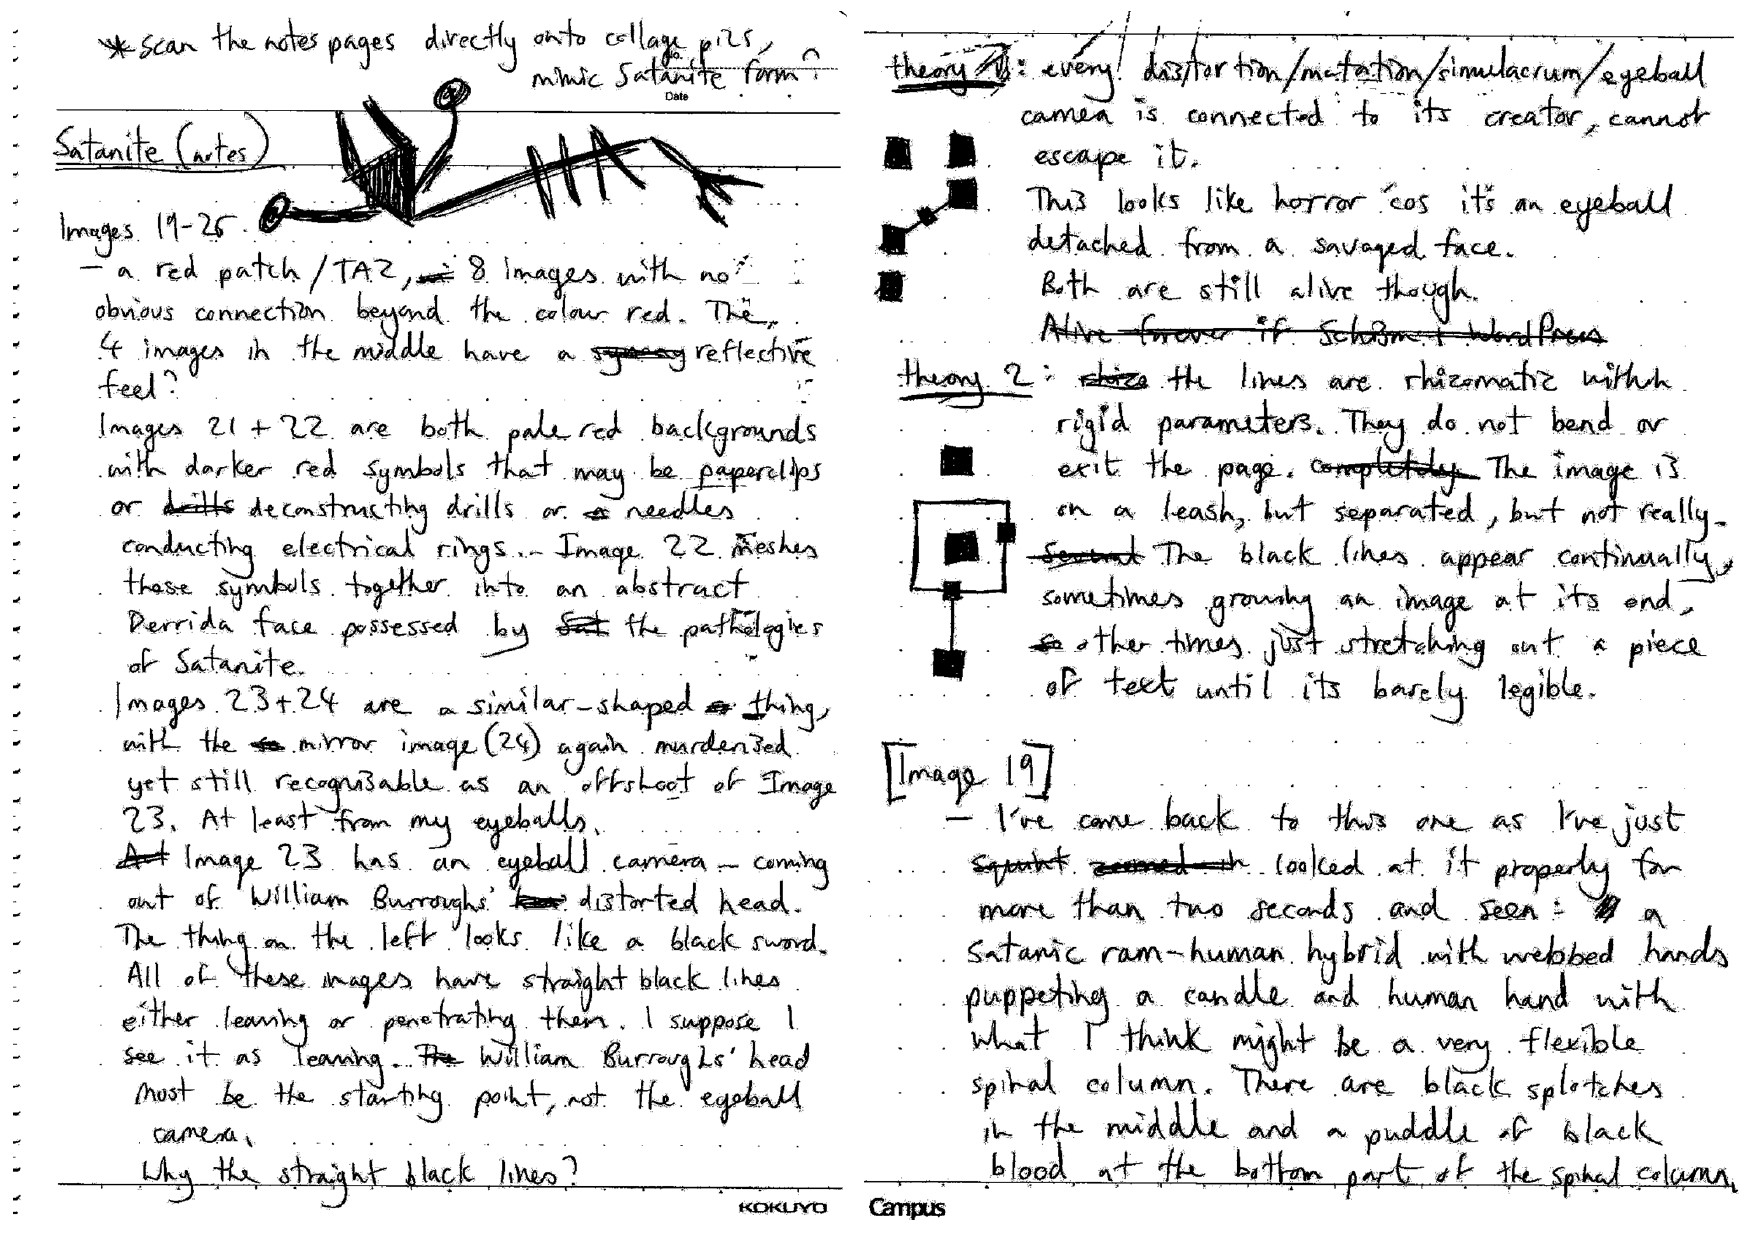 * scan the notes pages directly onto collage pizs,
mimic Satanite form?
Date
Satanite (artes)
Images 19-26.
- a red patch/TAZ, 8 images with no
obvious connection beyond the colour red. The
4 images in the middle have a reflective
feel?
Images 21 + 22 are both pale red backgrounds
with darker red symbols that may be paperclips
or drills deconstructing drills or a needles
conducting electrical rings... Image 22 meshes
those symbols together into an abstract
Derrida face possessed by Sat the pathologies
of Satanite.
Images 23+24 are a similar-shaped thing,
with the mirror image (24) again murdenzed
yet still recognisable as an offshoot of Image
23. At least from my eyeballs.
Image 23 has an eyeball camera - coming
out of William Burroughs' distorted head.
The thing on the left looks like a black sword.
All of these images have straight black lines
either leaving or penetrating them. I suppose I
see it as leaving. The William Burroughs' head
must be the starting point, not the eyeball
camera.
Why the straight black lines?
KOKUYO
theory 1: every distortion/mutation/simulacrum/eyeball
camera is connected to its creator, cannot
escape it.
This looks like horror 'cos it's an eyeball
detached from a savaged face.
Both are still alive though.
Alive forever if Schism + WordPress
theory 2: rhizo the lines are rhizomatic within
rigid parameters. They do not bend or
exit the page. completely The image is
on a leash, but separated, but not really.
Several The black lines appear continually,
sometimes growing an image at its end,
so other times just stretching out a piece
of text until its barely legible.
[Image 19]
- I've come back to this one as I've just
squint zoomed in looked at it properly for
more than two seconds and seen: a
satanic ram-human hybrid with webbed hands
puppeting a candle and human hand with
what I think might be a very flexible
spinal column. There are black splotches
in the middle and a puddle of black
blood at the bottom part of the spinal column.
Campus